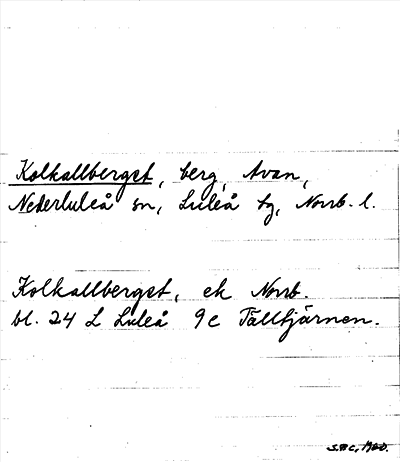 Kolkallberget, berg, Avan,
Nederluleå sn, Luleå tg, Norrb. l.
Kolkallberget, ek Norrb.
bl. 24 L Luleå 9c Tälltjärnen.